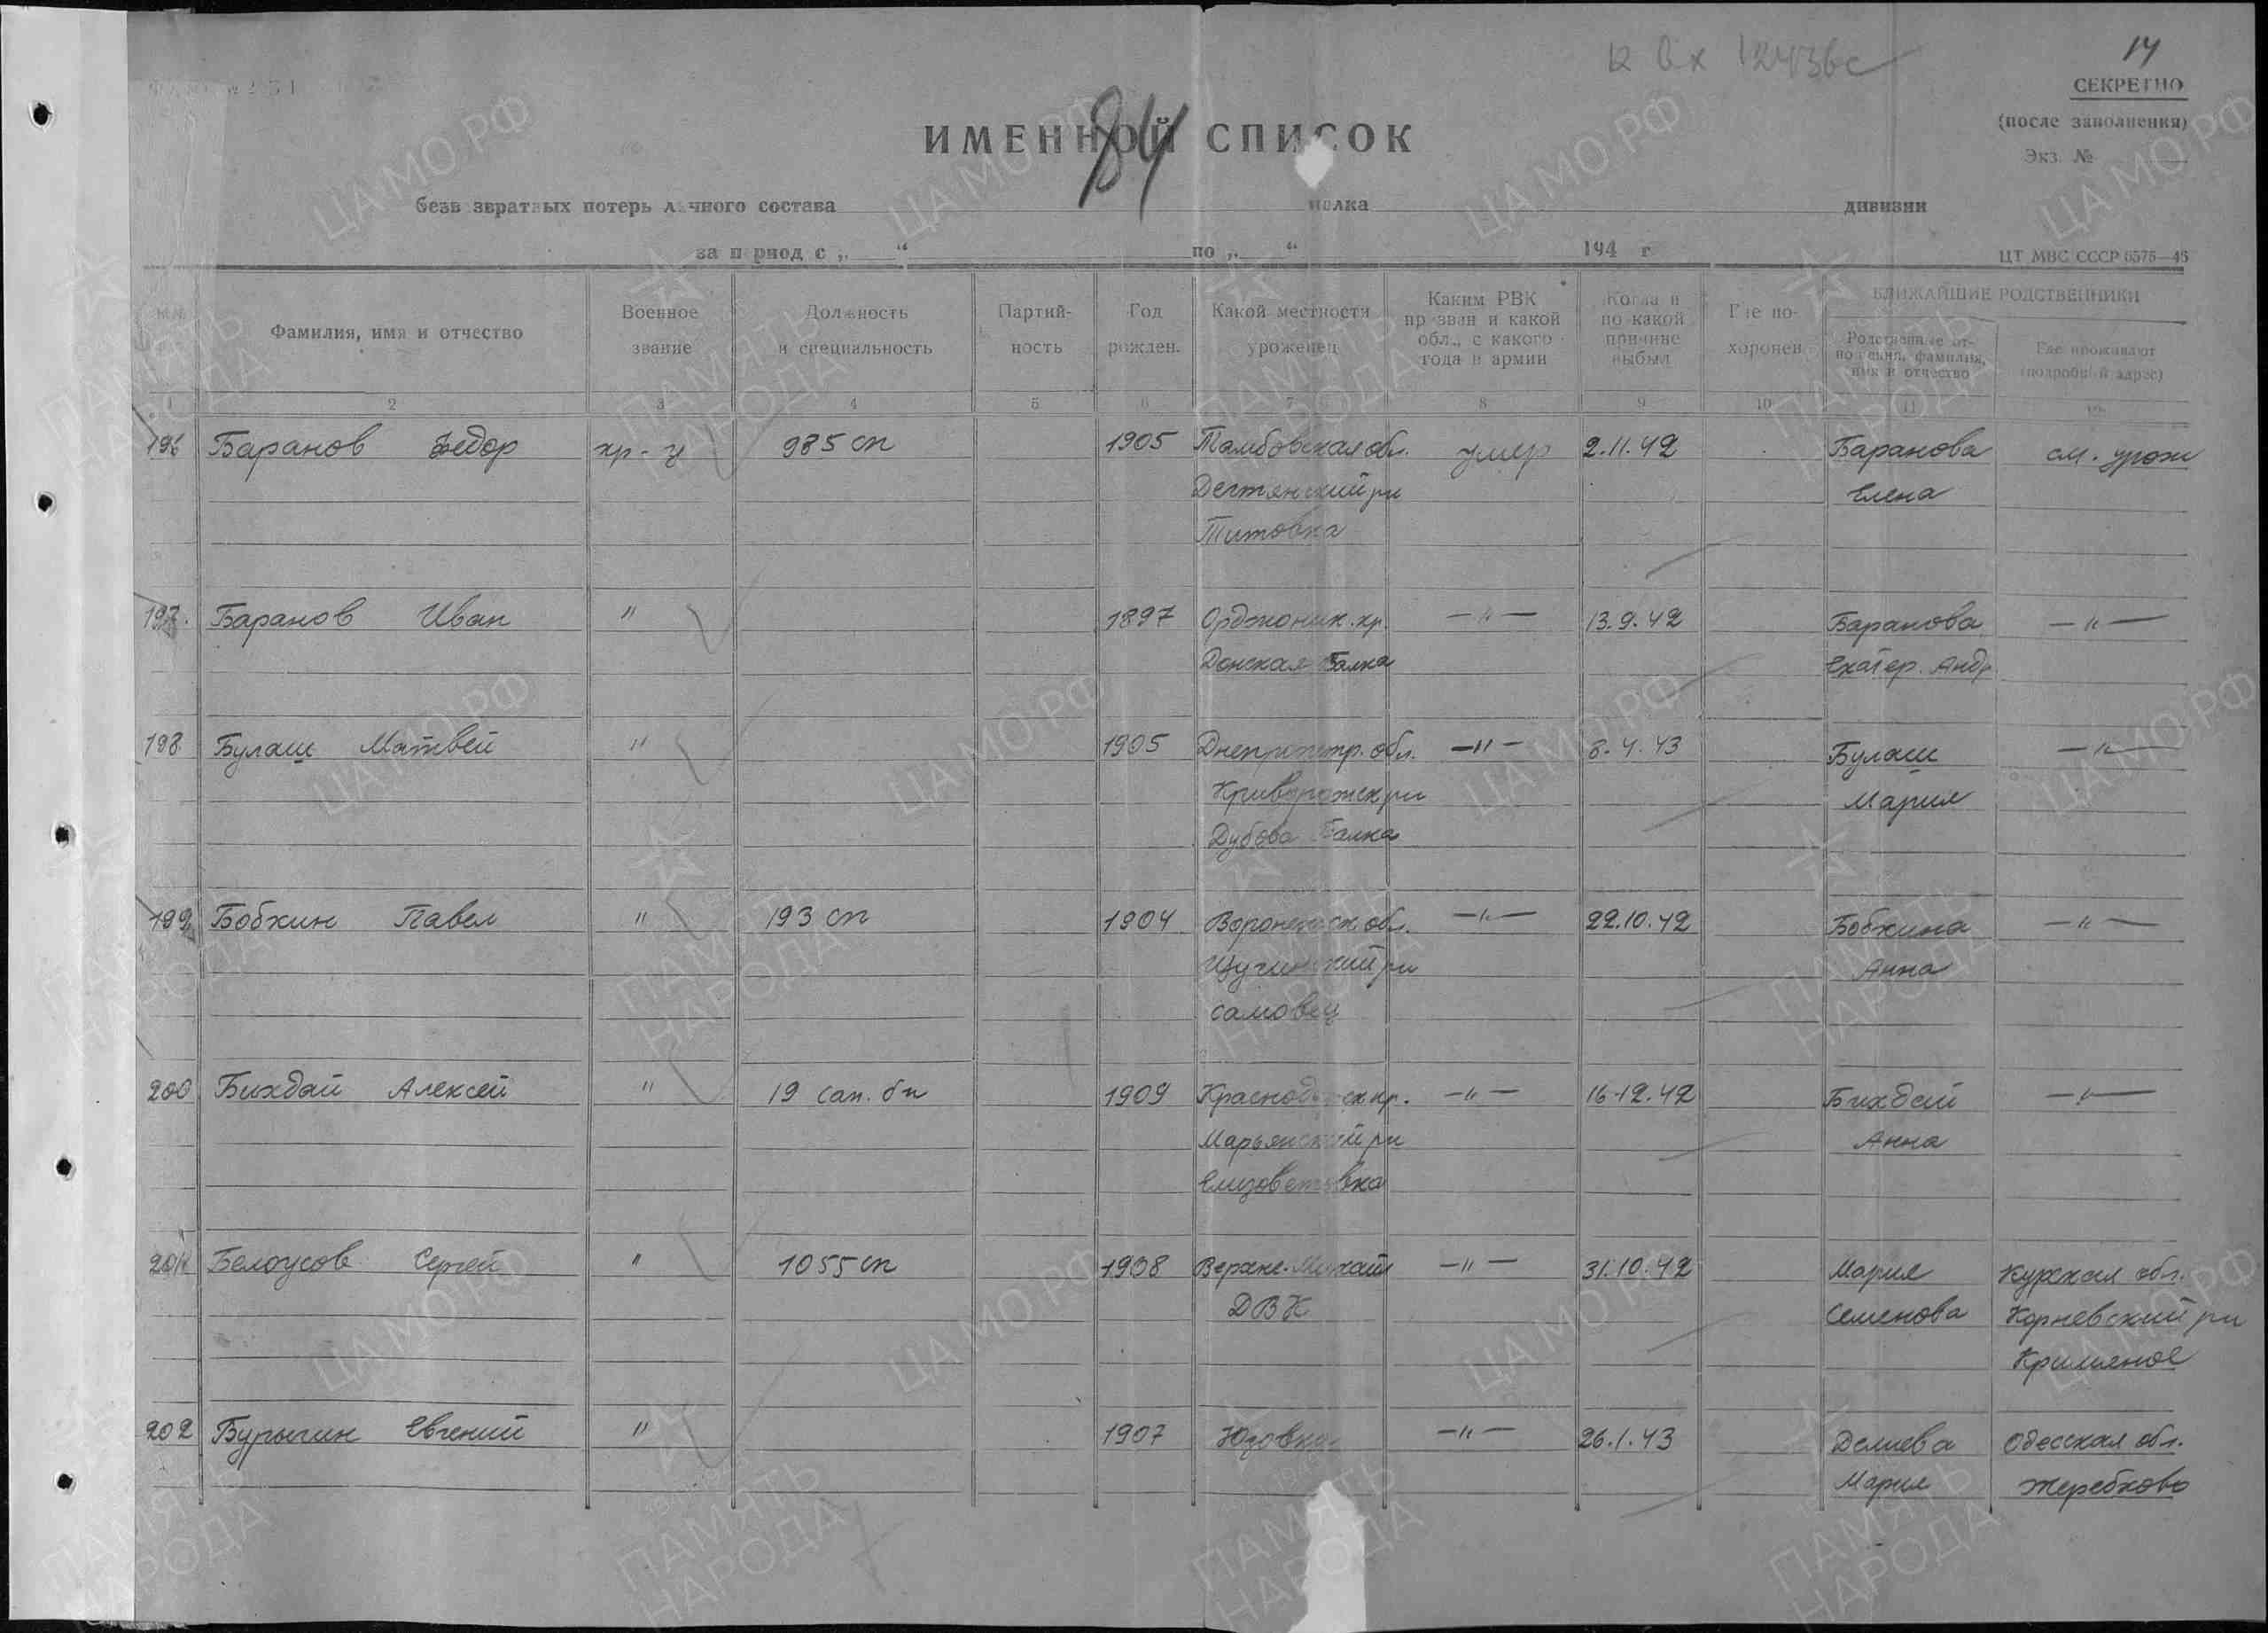 к Вх 1243вс
14
СЕКРЕТНО
(после заполнения)
Экз. №
84
ИМЕННОЙ СПИСОК
безвозвратных потерь личного состава полка дивизии
за период с „ “ по „ “ 194 г
ЦТ МВС СССР 6575—45
№№ Фамилия, имя и отчество Военное звание Должность и специальность Партийность Год рожден. Какой местности уроженец Каким РВК призван и какой обл., с какого года в армии Когда и по какой причине выбыл Где похоронен БЛИЖАЙШИЕ РОДСТВЕННИКИ
Родственные отношения, фамилия, имя и отчество Где проживают (подробный адрес)
1 2 3 4 5 6 7 8 9 10 11 12
196 Баранов Федор кр-ц 985 сп 1905 Тамбовская обл. умер 2.11.42 Баранова см. урож
Дегтянский рн Елена
Титовка
197. Баранов Иван " 1897 Орджоник. кр. —"— 13.9.42 Баранова —"—
Донская Балка Екатер. Андр.
198 Булаш Матвей " 1905 Днепропетр. обл. —"— 8.4.43 Булаш —"—
Криворожск рн Мария
Дубова Балка
199 Бобкин Павел " 193 сп 1904 Воронежск. обл. —"— 22.10.42 Бобкина —"—
Щучинский рн Анна
Самовец
200 Бихдай Алексей " 19 сап. бн 1909 Краснодарск кр. —"— 16.12.42 Бихдай —"—
Марьянский рн Анна
Елизоветовка
201 Белоусов Сергей " 1055 сп 1908 Верхне-Михайл —"— 31.10.42 Мария Курская обл.
ДВК Семенова Кореневский рн
202 Бурыгин Евгений " 1907 Юзовка —"— 26.1.43 Одесская обл.
Мария Жеребково
ЦАМО РФ
ПАМЯТЬ НАРОДА